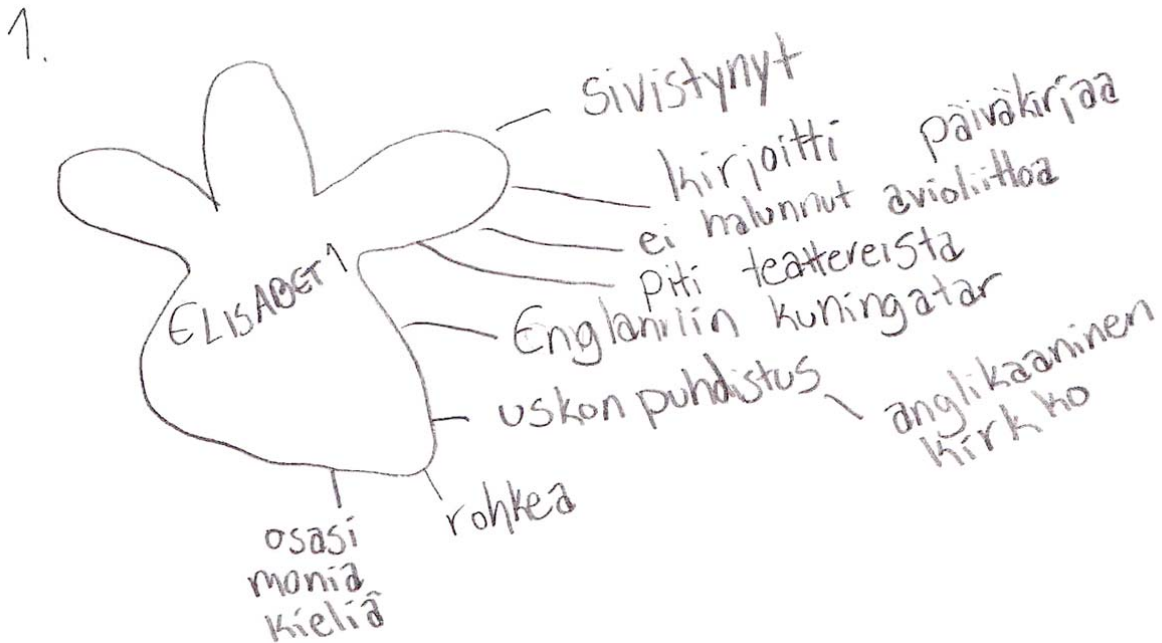 1.
ELISABET 1
sivistynyt
kirjoitti päiväkirjaa
ei halunnut avioliittoa
piti teattereista
Englannin kuningatar
uskon puhdistus
anglikaaninen
kirkko
rohkea
osasi
monia
kieliä